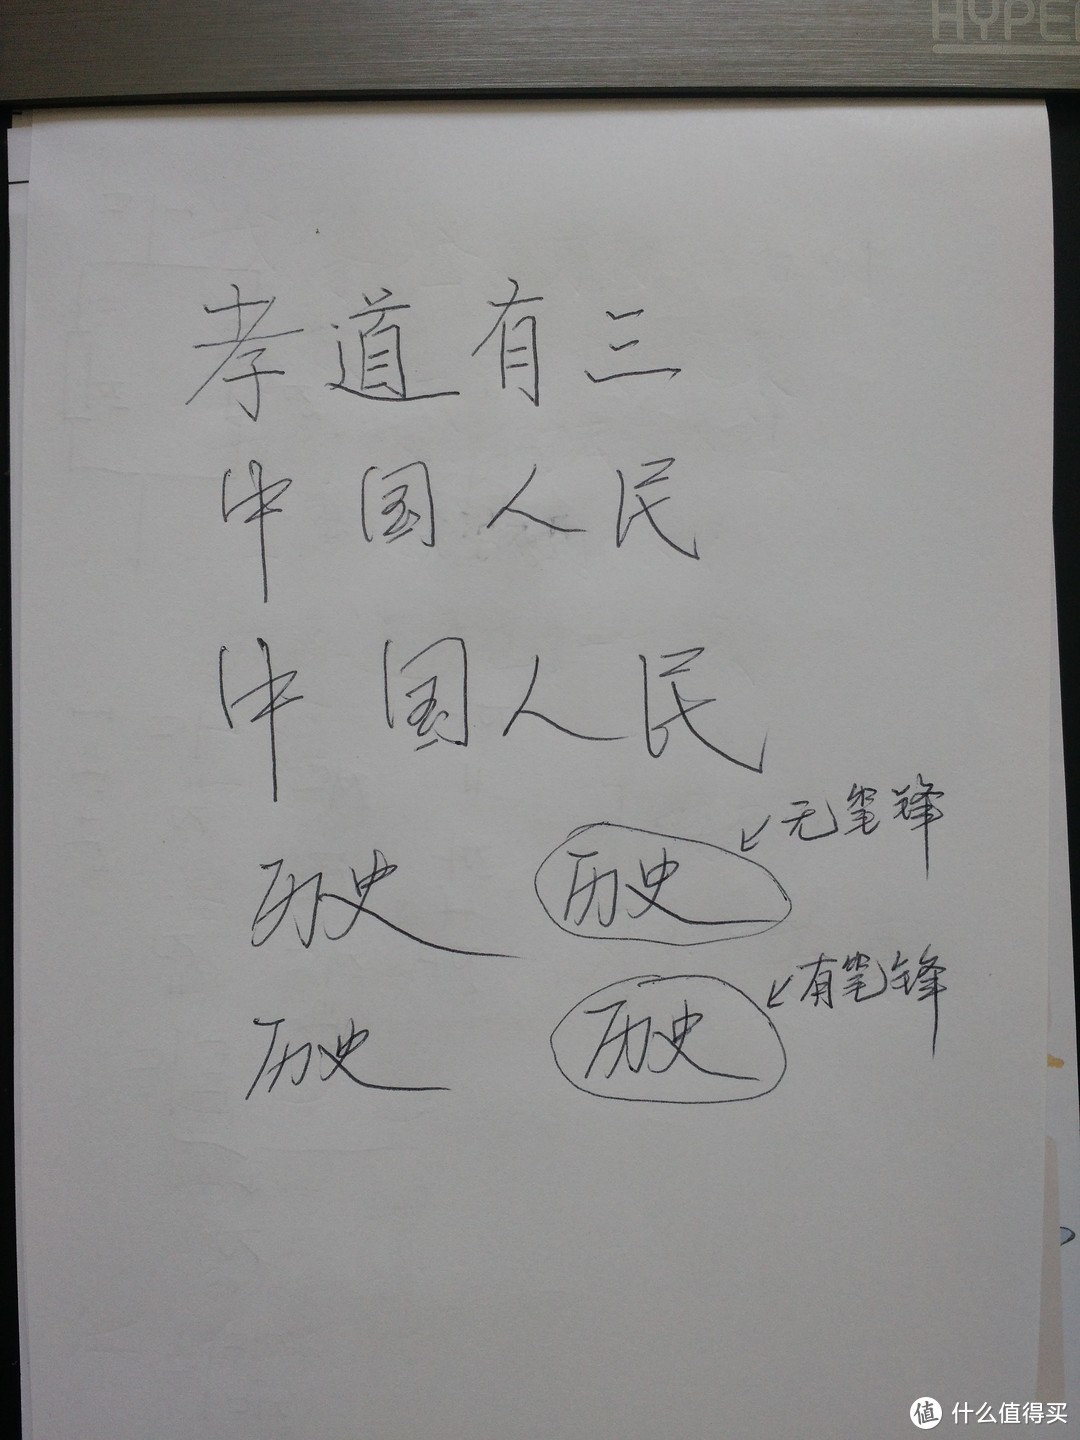 HYPER
孝道有三
中国人民
中国人民
无笔锋
历史 历史
有笔锋
历史 历史
值 什么值得买